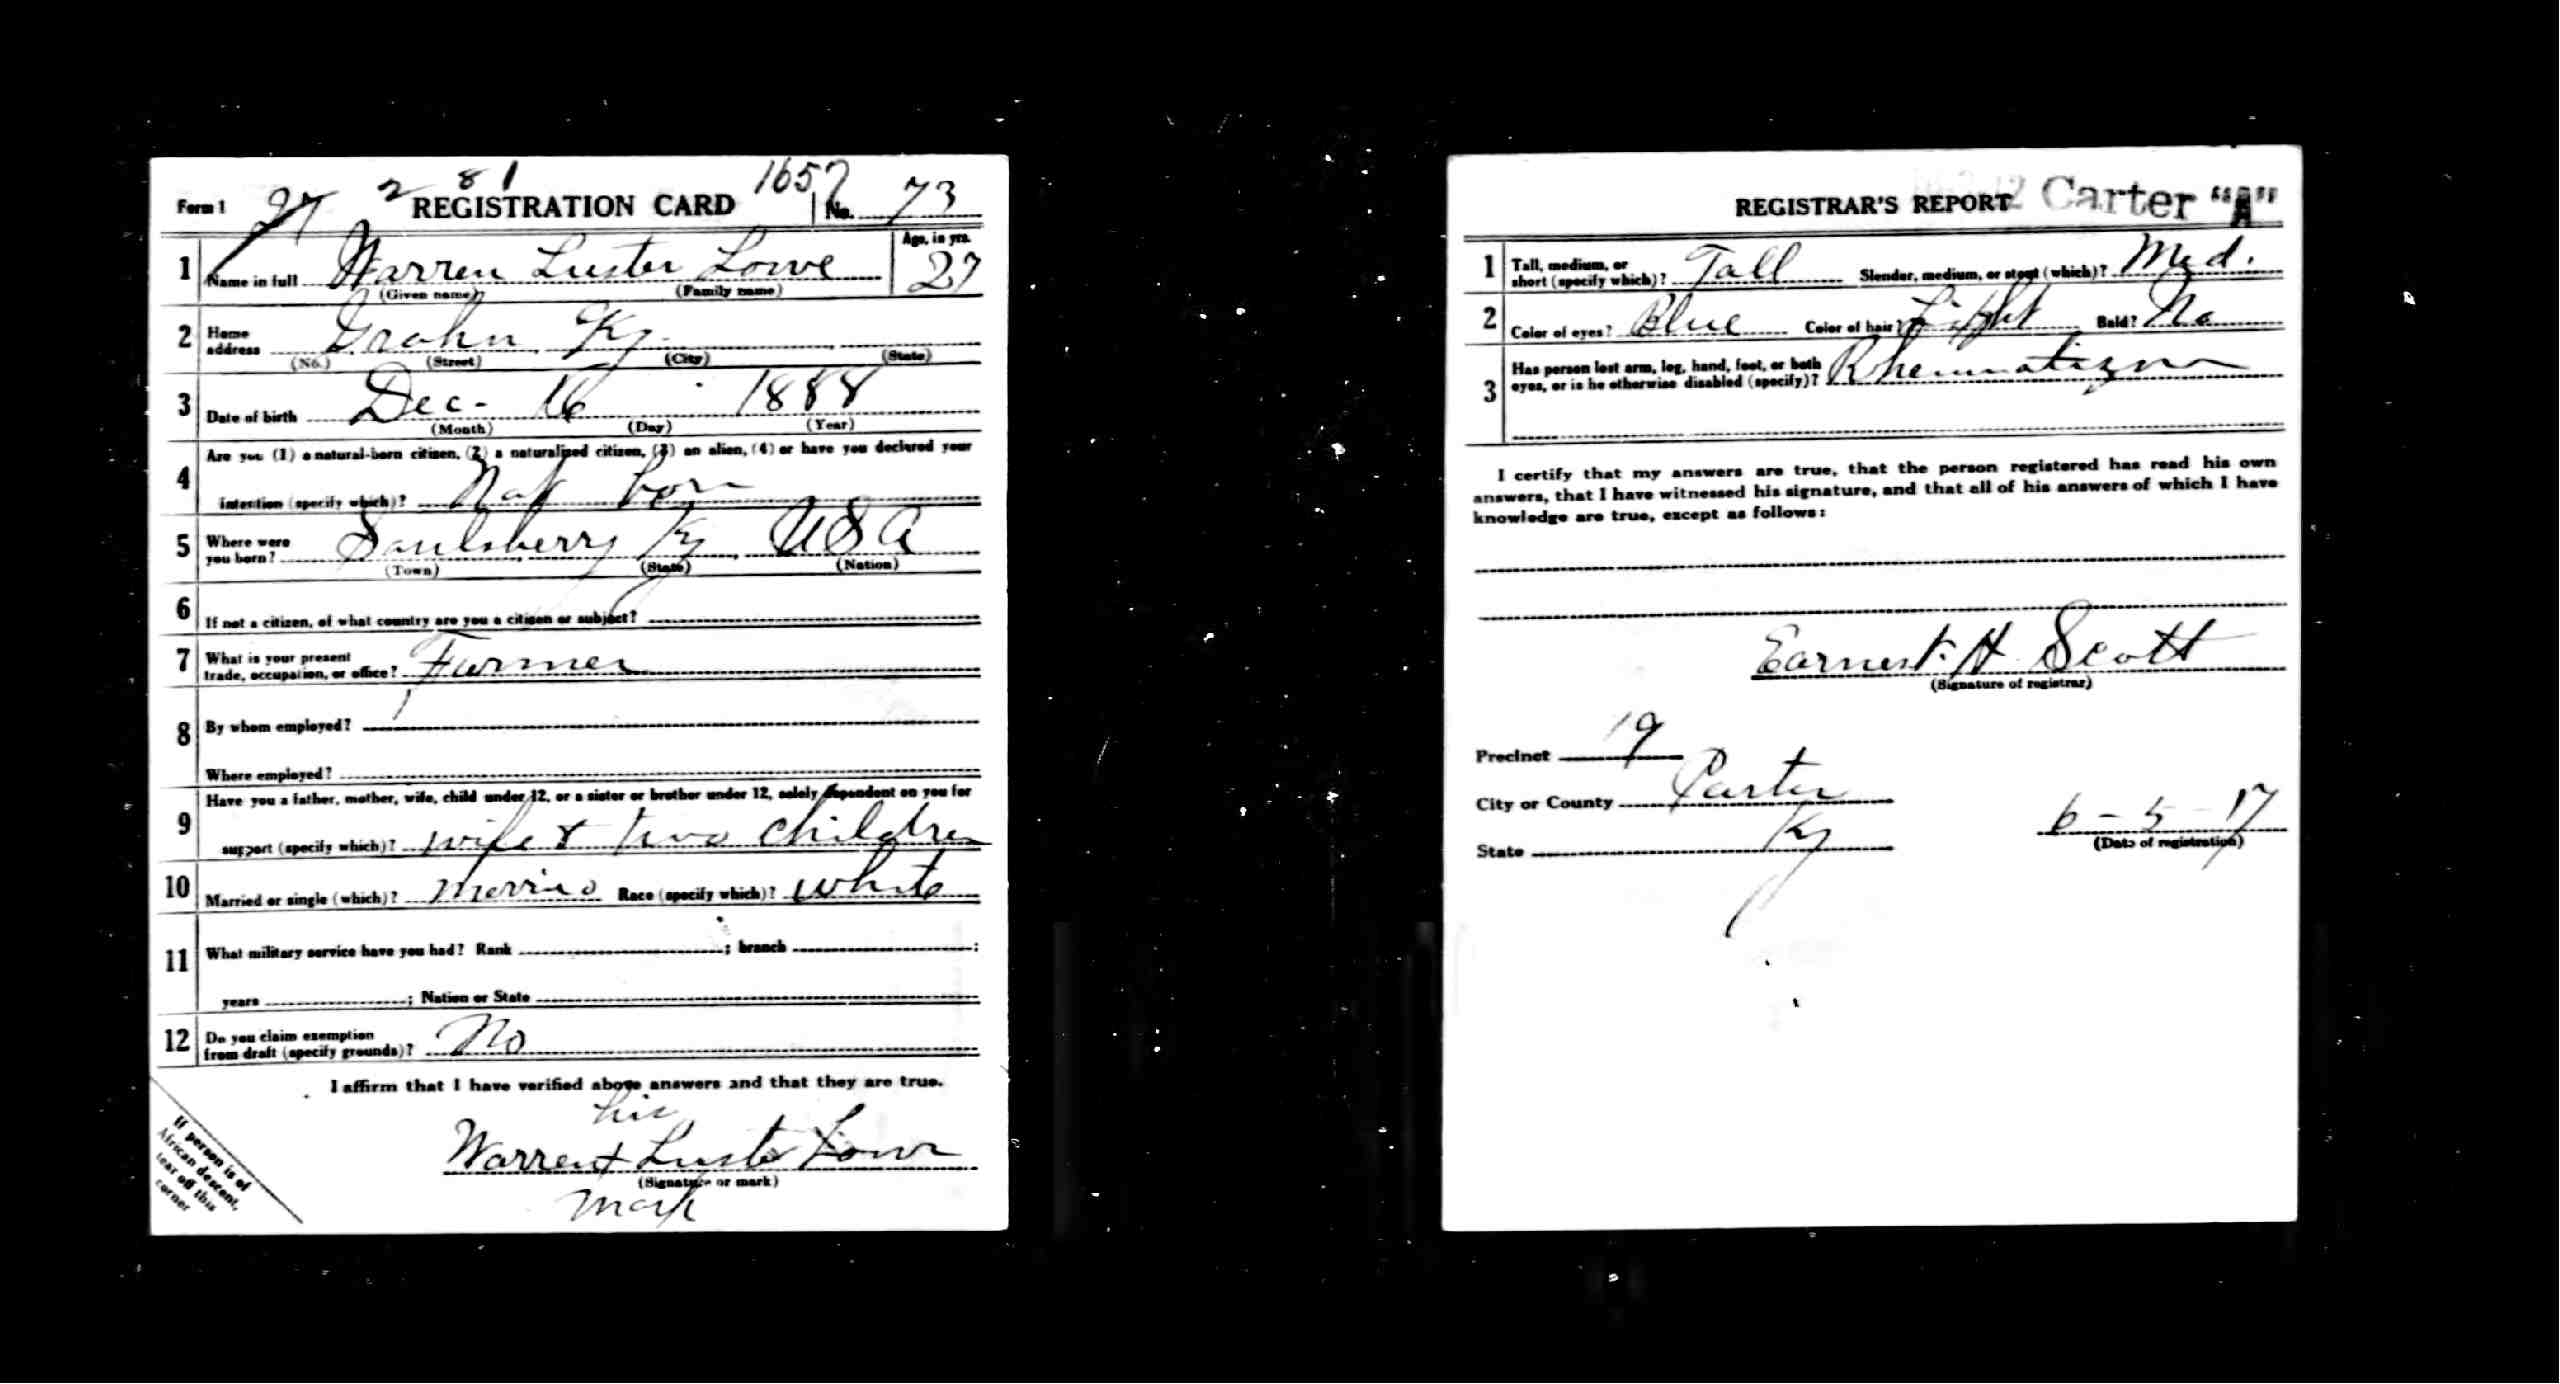 2 81 1657
Form 1 27 REGISTRATION CARD No. 73
1 Name in full Warren Luster Lowe Age, in yrs. 27
(Given name) (Family name)
2 Home address Grahn Ky.
(No.) (Street) (City) (State)
3 Date of birth Dec- 16 1888
(Month) (Day) (Year)
4 Are you (1) a natural-born citizen, (2) a naturalized citizen, (3) an alien, (4) or have you declared your
intention (specify which)? Nat born
5 Where were you born? Saulsberry Ky USA
(Town) (State) (Nation)
6 If not a citizen, of what country are you a citizen or subject?
7 What is your present
trade, occupation, or office? Farmer
8 By whom employed?
Where employed?
9 Have you a father, mother, wife, child under 12, or a sister or brother under 12, solely dependent on you for
support (specify which)? wife & two children
10 Married or single (which)? Race (specify which)? white
11 What military service have you had? Rank ; branch ;
years ; Nation or State
12 Do you claim exemption
from draft (specify grounds)? No
I affirm that I have verified above answers and that they are true.
his
Warren x Luster Lowe
(Signature or mark)
mark
If person is of
African descent,
tear off this
corner
REGISTRAR'S REPORT Carter "A"
1 Tall, medium, or
short (specify which)? Tall Slender, medium, or stout (which)? Med.
2 Color of eyes? Blue Color of hair? Light Bald? No
3 Has person lost arm, leg, hand, foot, or both
eyes, or is he otherwise disabled (specify)? Rheumatizm
I certify that my answers are true, that the person registered has read his own
answers, that I have witnessed his signature, and that all of his answers of which I have
knowledge are true, except as follows:
Earnest H Scott
(Signature of registrar)
Precinct 19
City or County Carter
State Ky 6-5-17
(Date of registration)